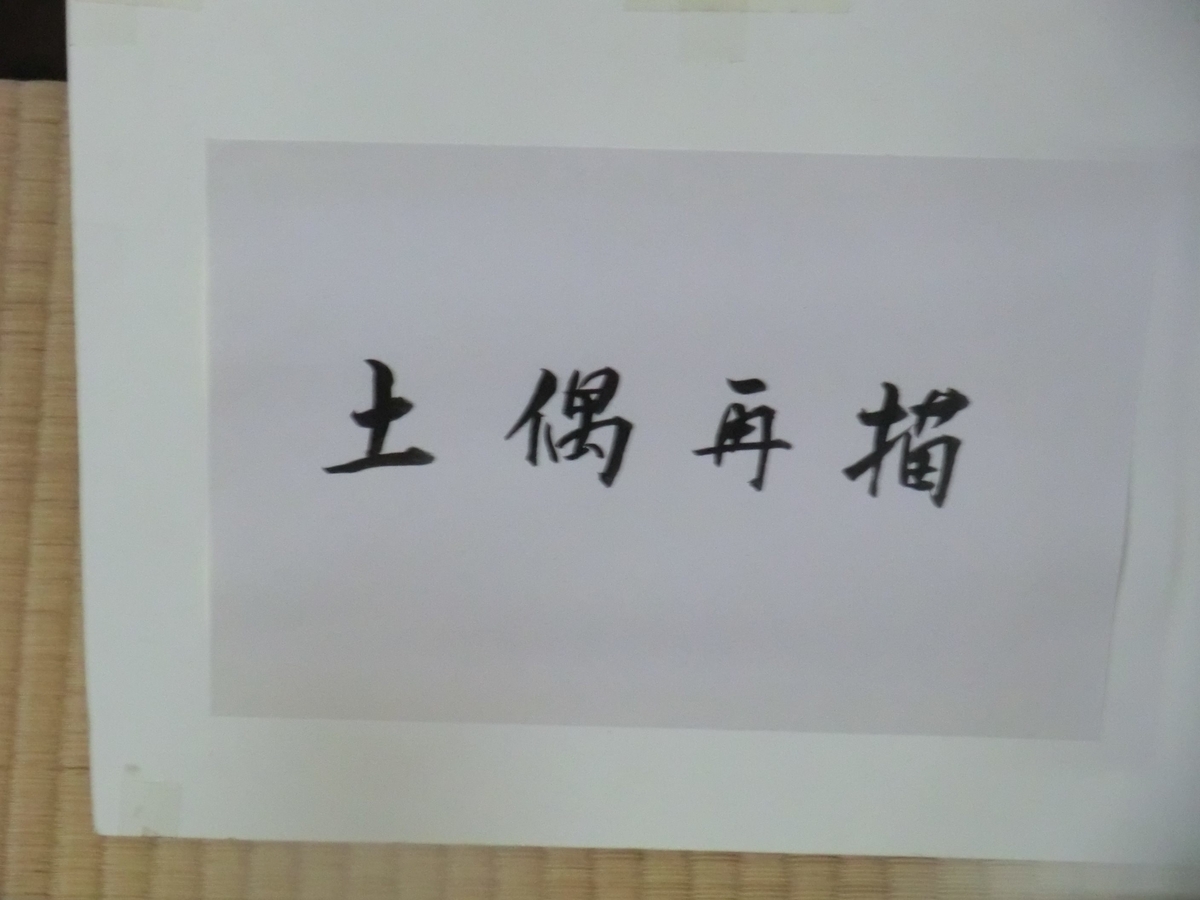 土偶再描